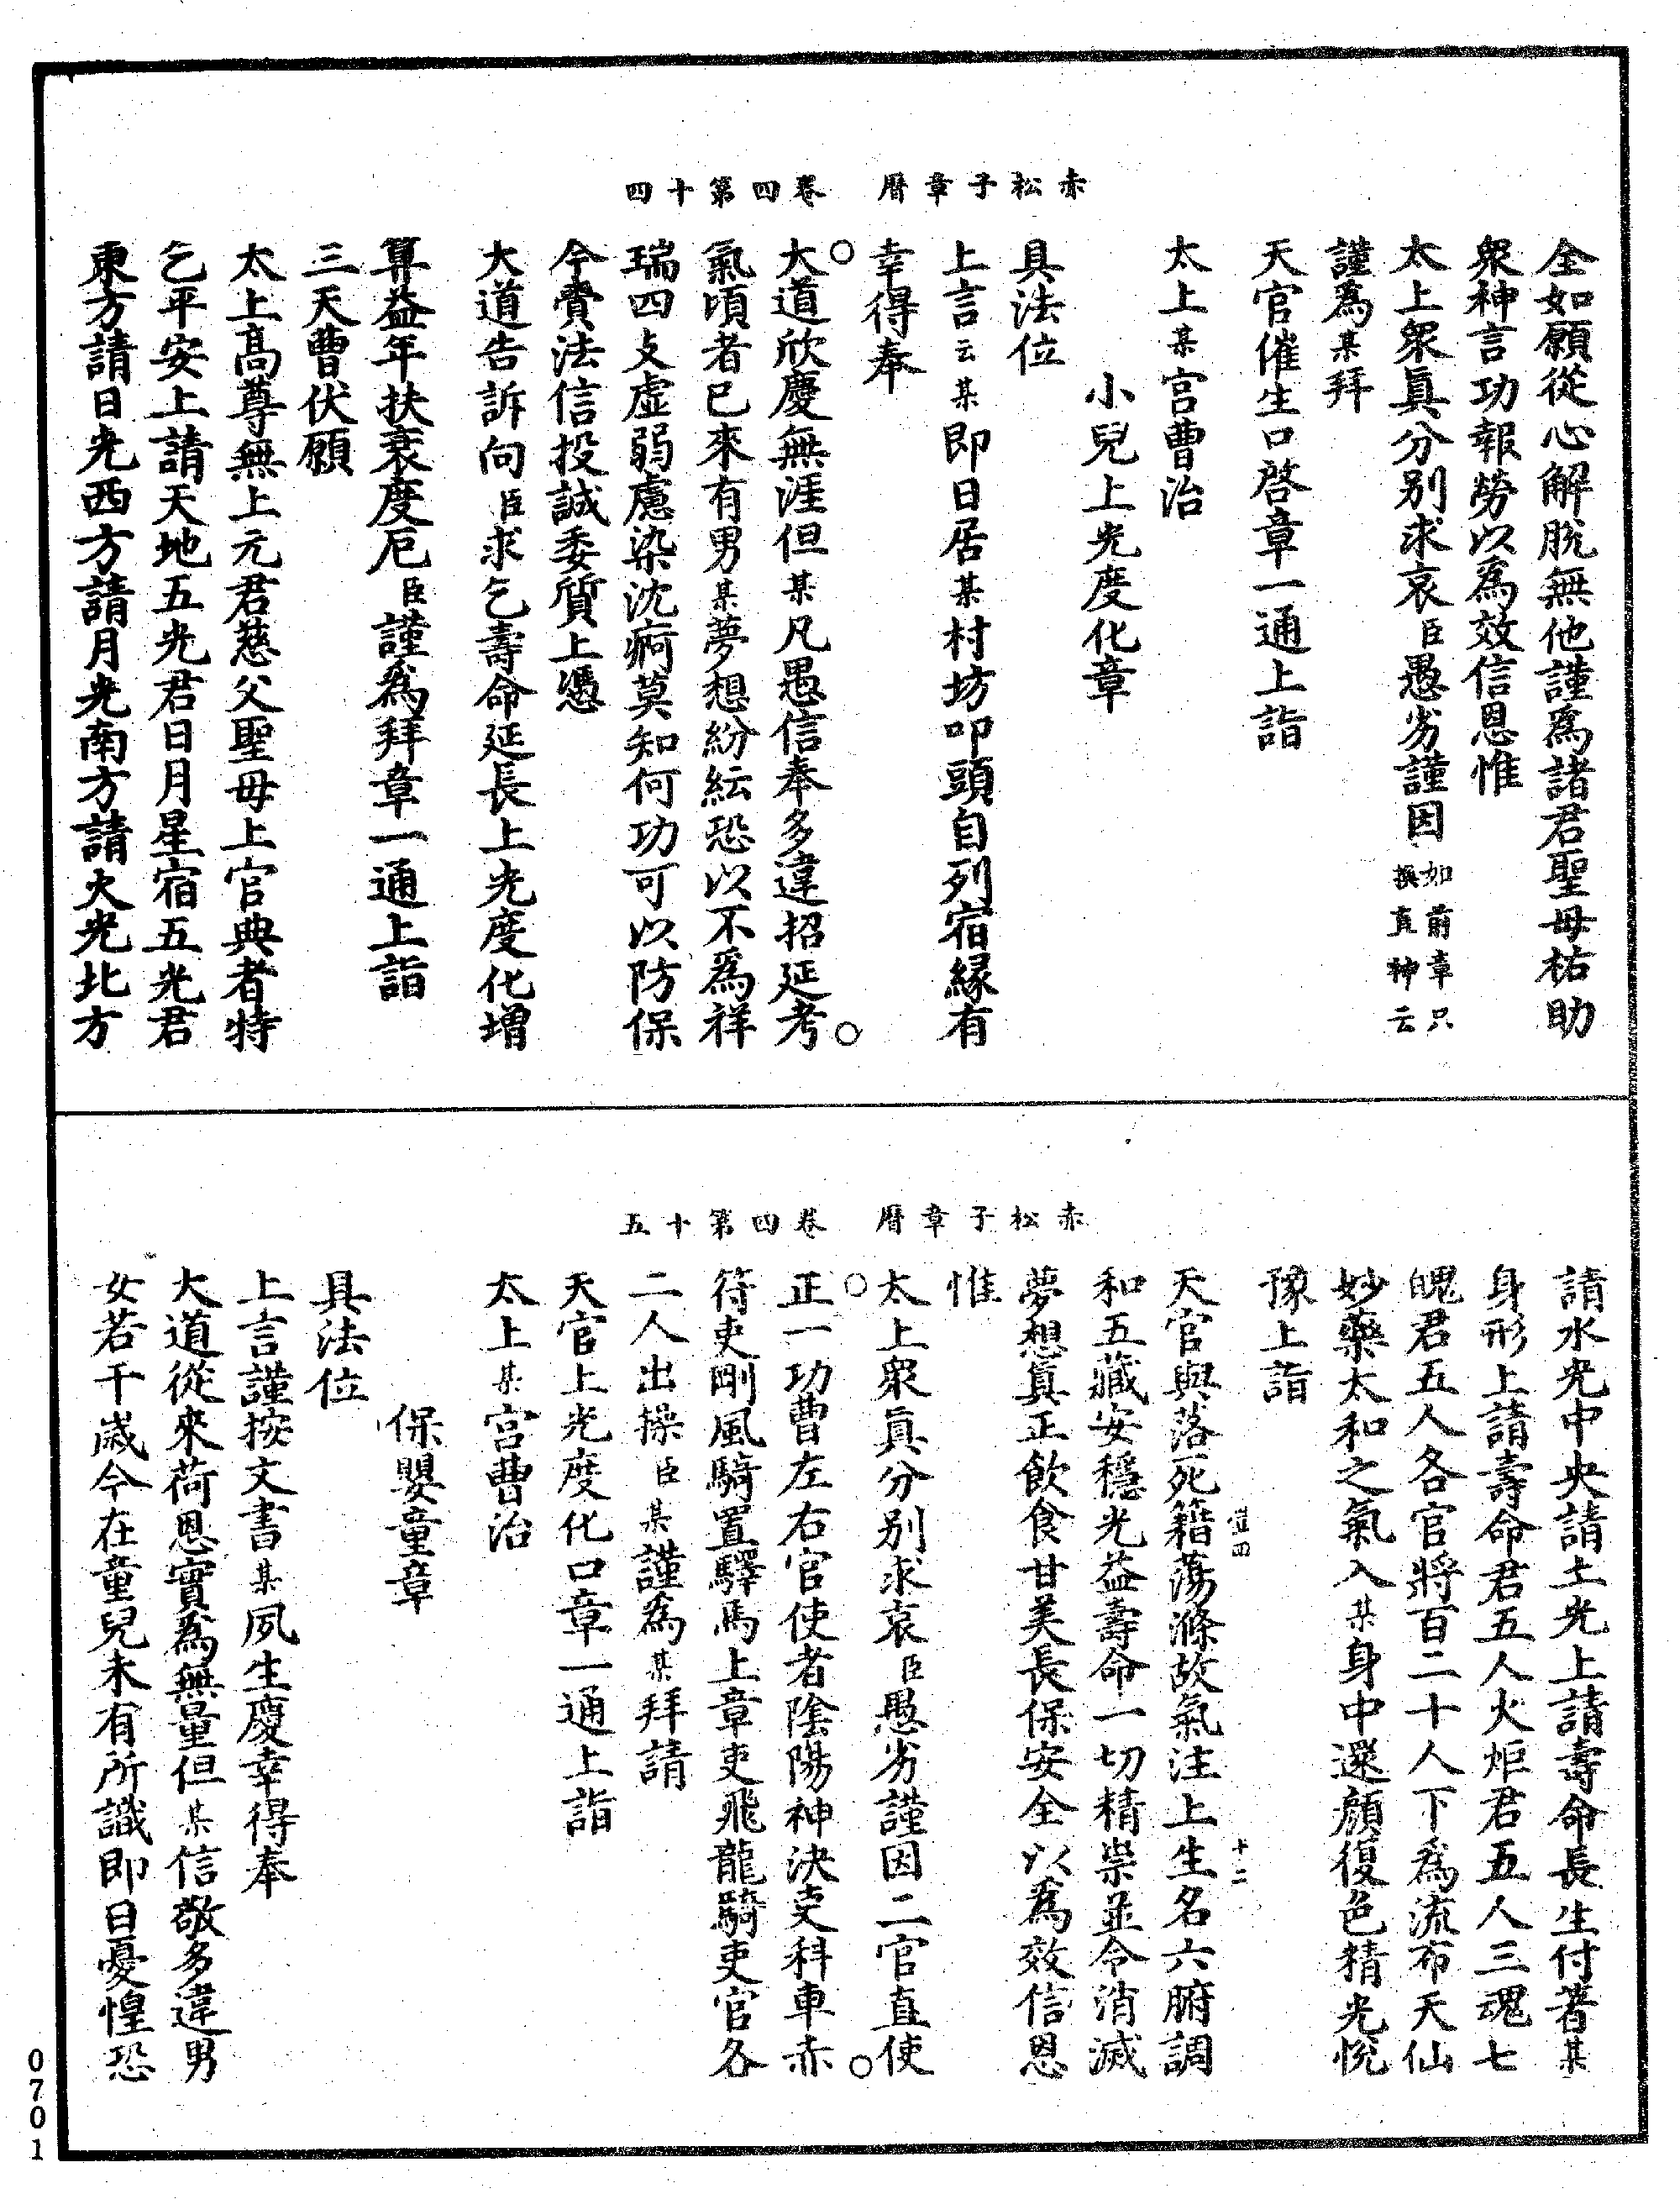 赤松子章曆　卷四第十四
全如願從心解脫無他謹為諸君聖母祐助
眾神言功報勞以為效信恩惟
太上眾真分別求哀臣愚劣謹因如前章只撰直神云
謹為某拜
天官催生口啓章一通上詣
太上某宮曹治
小兒上光度化章
具法位
上言云某即日居某村坊叩頭自列宿緣有
幸得奉
大道欣慶無涯但某凡愚信奉多違招延考
氣頃者已來有男某夢想紛紜恐以不為祥
瑞四支虛弱慮染沈痾莫知何功可以防保
今賷法信投誠委質上憑
大道告訴向臣求乞壽命延長上光度化增
算益年扶衰度厄臣謹為拜章一通上詣
三天曹伏願
太上高尊無上元君慈父聖母上官典者特
乞平安上請天地五光君日月星宿五光君
東方請日光西方請月光南方請火光北方
赤松子章曆　卷四第十五
請水光中央請土光上請壽命長生付著某
身形上請壽命君五人火炬君五人三魂七
魄君五人各官將百二十人下為流布天仙
妙藥太和之氣入某身中還顏復色精光悅
豫上詣
天官與落死籍蕩滌故氣注上生名六腑調
和五藏安穩光益壽命一切精祟並令消滅
夢想真正飲食甘美長保安全以為效信恩
惟
太上眾真分別求哀臣愚劣謹因二官直使
正一功曹左右官使者陰陽神決吏科車赤
符吏剛風騎置驛馬上章吏飛龍騎吏官各
二人出操臣某謹為某拜請
天官上光度化口章一通上詣
太上某宮曹治
保嬰童章
具法位
上言謹按文書某夙生慶幸得奉
大道從來荷恩實為無量但某信敬多違男
女若干歲今在童兒未有所識即日憂惶恐
十二
0701